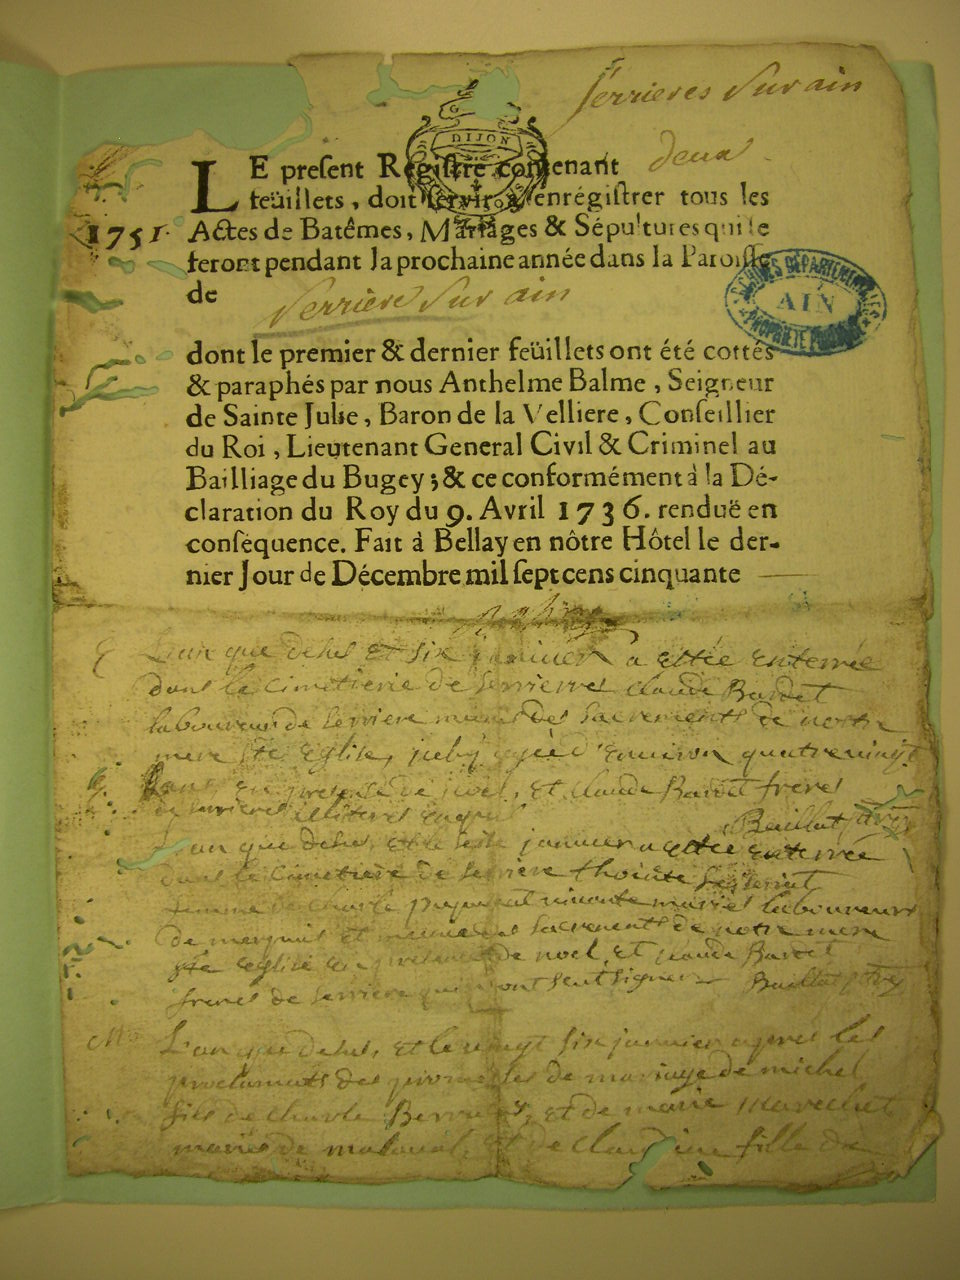 Serrieres Sur ain
DIJON
LE preſent Regiſtre contenant deux
feüillets, doit ſervir à enrégiſtrer tous les
1751. Actes de Batêmes, Mariages & Sépultures qui ſe
feront pendant la prochaine année dans la Paroiſſe
de Serriere Sur ain
ARCHIVES DÉPARTEMENTALES
AIN
PROPRIÉTÉ PUBLIQUE
dont le premier & dernier feüillets ont été cottés
& paraphés par nous Anthelme Balme, Seigneur
de Sainte Julie, Baron de la Velliere, Conſeillier
du Roi, Lieutenant General Civil & Criminel au
Bailliage du Bugey; & ce conformément à la Dé-
claration du Roy du 9. Avril 1736. renduë en
conſéquence. Fait à Bellay en nôtre Hôtel le der-
nier Jour de Décembre mil ſept cens cinquante
L'an que desus et six janvier a estée enterrée
dans le cimetiere de serrieres claude Bardet
laboureur de serriere muni des sacrements de notre
mere ste Eglise, agée d'environ quatre vingt
ans, en presence de noel, et claude Bardet freres
de serrieres illiteres enquis Baillat
L'an que desus, et le janvier a estée enterrée
dans le cimetiere de serriere
femme de charle vivante mariés laboureurs
de et munie des sacrements de notre mere
ste eglise en presence de noel, et claude Bardet
freres de serriere qui n'ont sceut signer Baillat
L'an que desus, et le vingt six janvier apres les
proclamats des promesses de mariage de michel
fils de charle et de marie marechet
mariés de et de claudine fille de